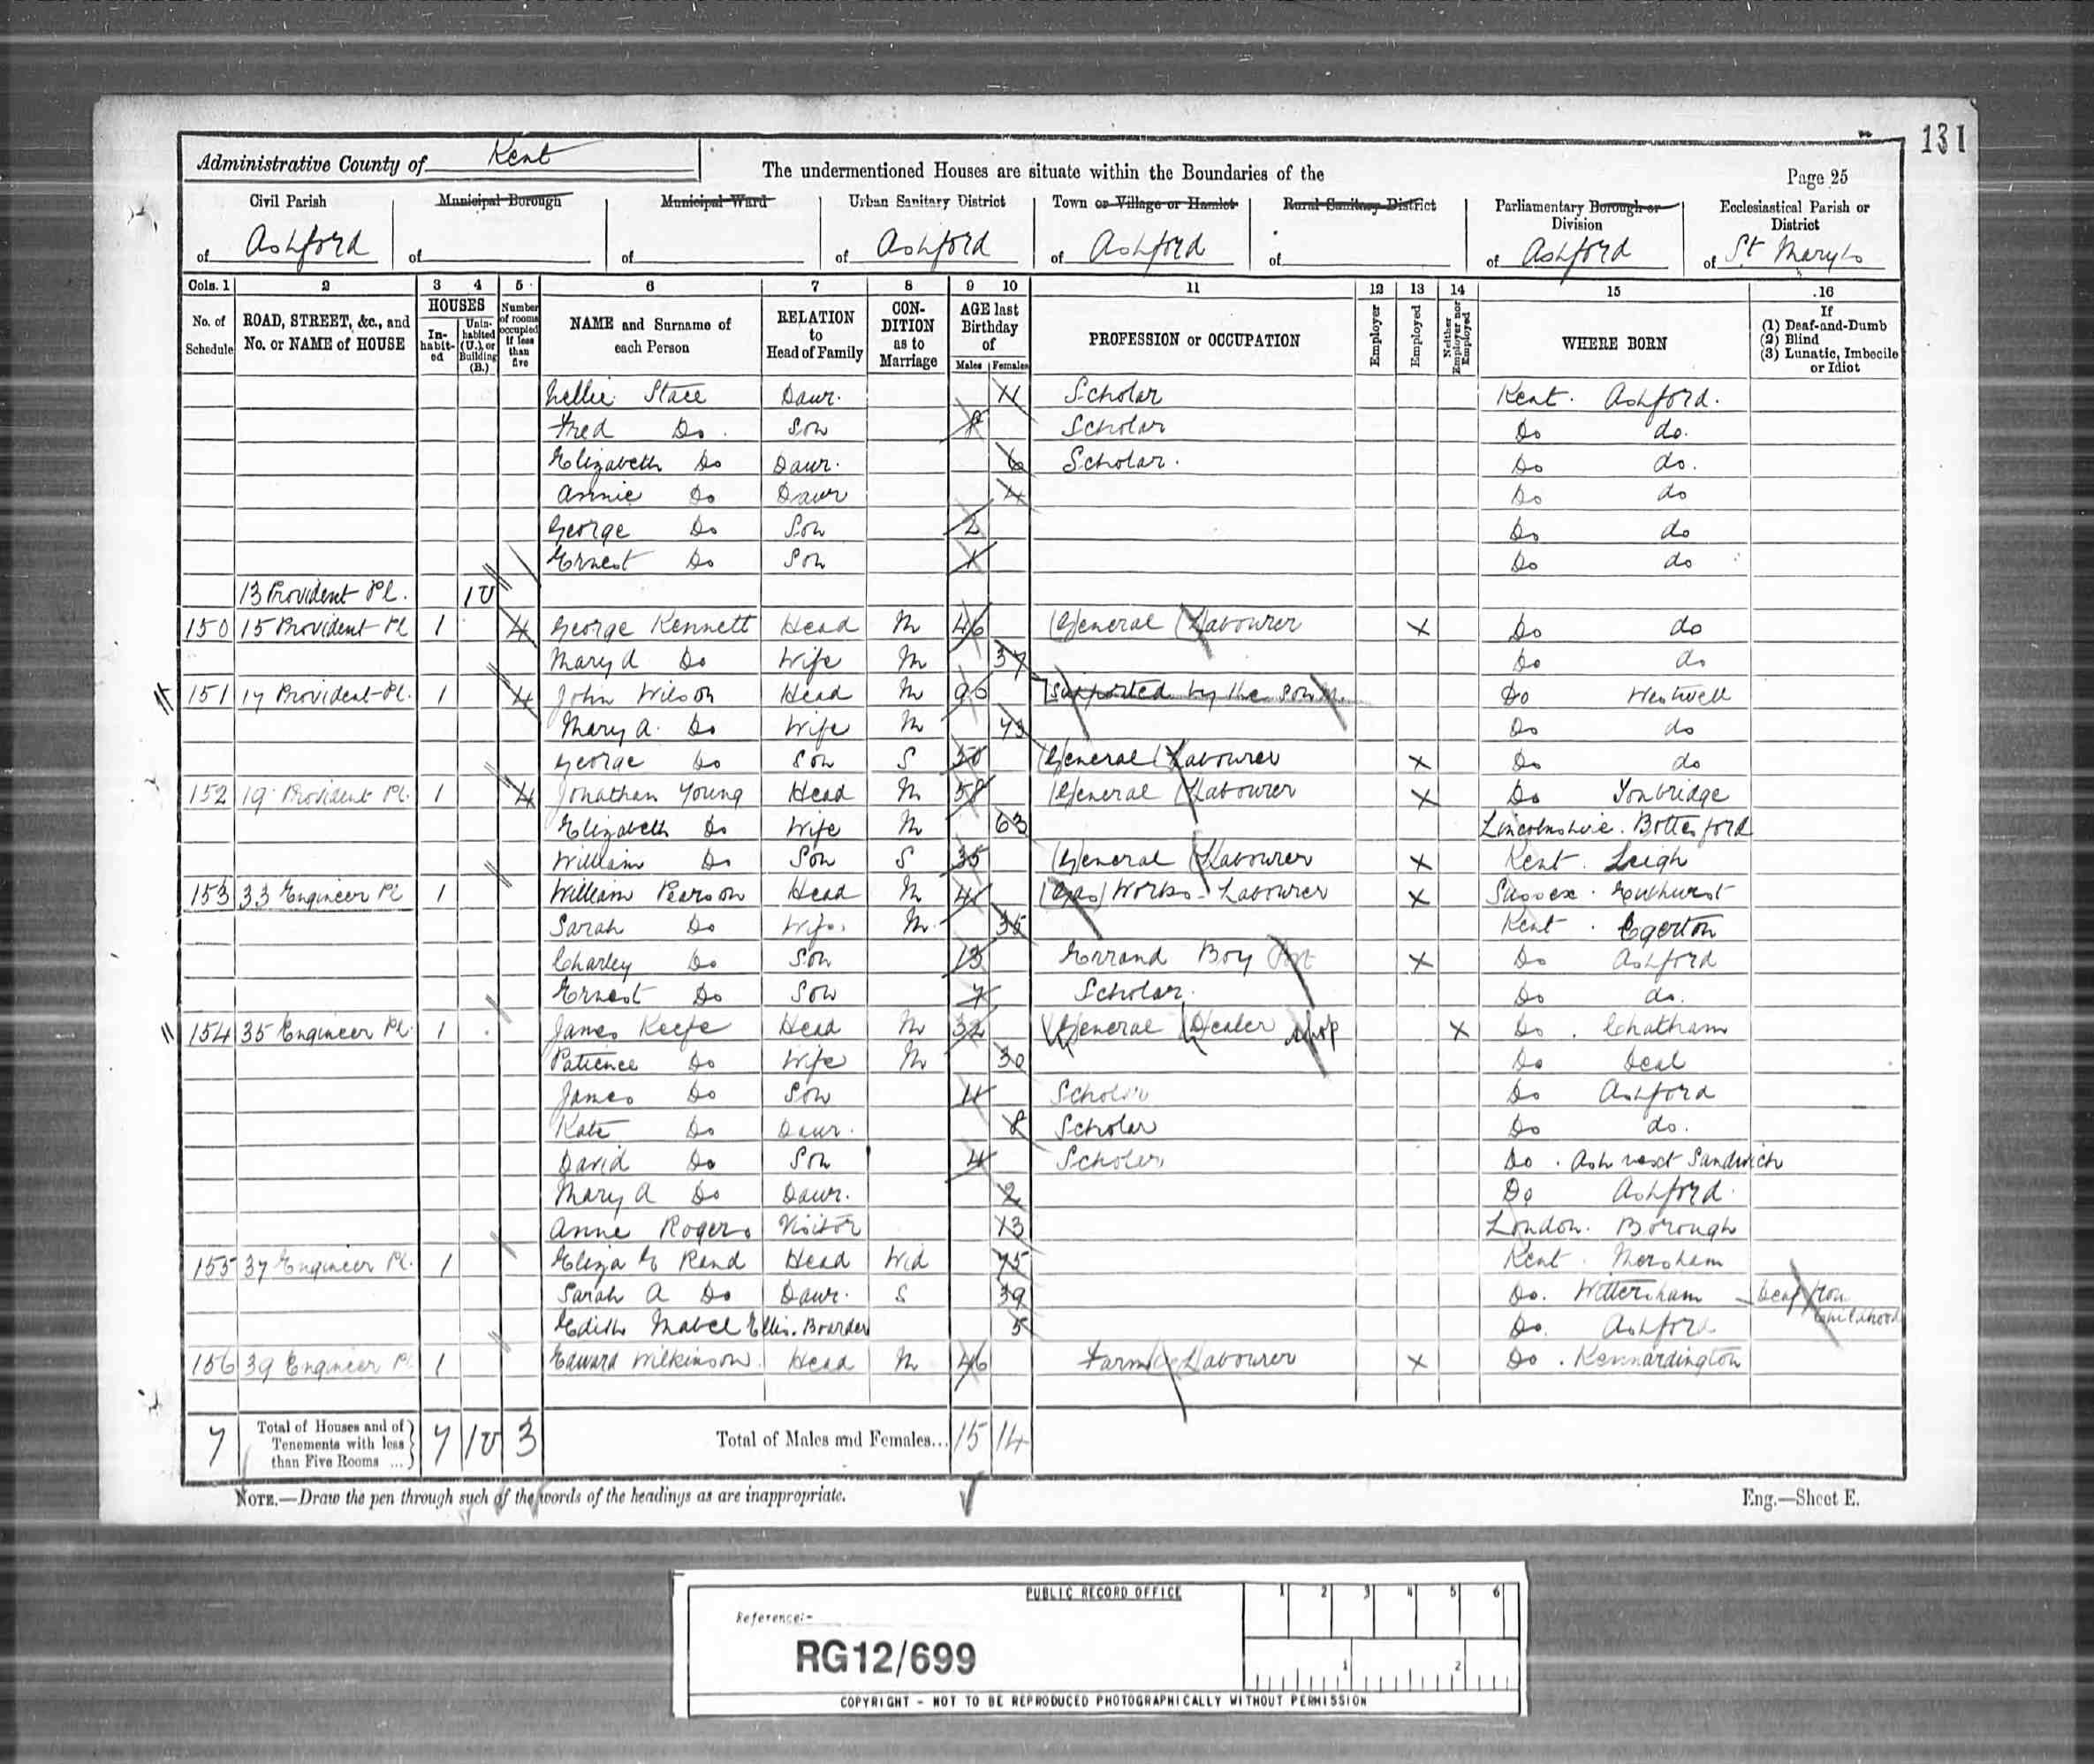 131
Administrative County of Kent
The undermentioned Houses are situate within the Boundaries of the
Page 25
Civil Parish of Ashford
Municipal Borough of
Municipal Ward of
Urban Sanitary District of Ashford
Town or Village or Hamlet of Ashford
Rural Sanitary District of
Parliamentary Borough or Division of Ashford
Ecclesiastical Parish or District of St Mary's
Cols. 1 2 3 4 5 6 7 8 9 10 11 12 13 14 15 16
No. of Schedule
ROAD, STREET, &c., and No. or NAME of HOUSE
HOUSES
In-habit-ed
Unin-habited (U.), or Building (B.)
Number of rooms occupied if less than five
NAME and Surname of each Person
RELATION to Head of Family
CON-DITION as to Marriage
AGE last Birthday of
Males Females
PROFESSION or OCCUPATION
Employer
Employed
Neither Employer nor Employed
WHERE BORN
If
(1) Deaf-and-Dumb
(2) Blind
(3) Lunatic, Imbecile or Idiot
Nellie Stace Daur. 11 Scholar Kent. Ashford.
Fred Do. Son 8 Scholar Do do.
Elizabeth Do Daur. 6 Scholar. Do do.
Annie Do Daur 4 Do do
George Do Son 2 Do do
Ernest Do Son 1 Do do
13 Provident Pl. 1U
150 15 Provident Pl 1 4 George Kennett Head M 46 General Labourer X Do do
Mary A Do Wife M 37 Do do
151 17 Provident Pl. 1 4 John Wilson Head M Supported by the Do Westwell
Mary A. Do Wife M 73 Do do
George Do Son S General Labourer X Do do
152 19 Provident Pl. 1 4 Jonathan Young Head M 58 General Labourer X Do Tonbridge
Elizabeth Do Wife M 63 Lincolnshire. Bottesford
William Do Son S 35 General Labourer X Kent. Leigh
153 33 Engineer Pl 1 William Pearson Head M 41 Gas Works Labourer X Sussex. Ewhurst
Sarah Do Wife. M. 35 Kent. Egerton
Charley Do Son 13 Errand Boy X Do Ashford
Ernest Do Son 7 Scholar. Do do.
154 35 Engineer Pl. 1 James Keefe Head M 32 General Dealer shop X Do. Chatham
Patience Do Wife M 30 Do Deal
James Do Son 11 Scholar Do Ashford
Kate Do Daur. 8 Scholar Do do.
David Do Son 4 Scholar Do. Ash next Sandwich
Mary A Do Daur. 2 Do Ashford.
Anne Rogers Visitor 13 London. Borough
155 37 Engineer Pl. 1 Eliza E Rand Head Wid 75 Kent. Mersham
Sarah A Do Daur. S 39 Do. Wittersham Deaf from childhood
Edith Mabel Ellis. Boarder 5 Do. Ashford
156 39 Engineer Pl 1 Edward Wilkinson. Head M 46 Farm Labourer X Do. Kennardington
7 Total of Houses and of Tenements with less than Five Rooms ... 7 1U 3 Total of Males and Females... 15 14
NOTE.—Draw the pen through such of the words of the headings as are inappropriate.
Eng.—Sheet E.
PUBLIC RECORD OFFICE
1 2 3 4 5 6
Reference:-
RG12/699
1 2
COPYRIGHT - NOT TO BE REPRODUCED PHOTOGRAPHICALLY WITHOUT PERMISSION